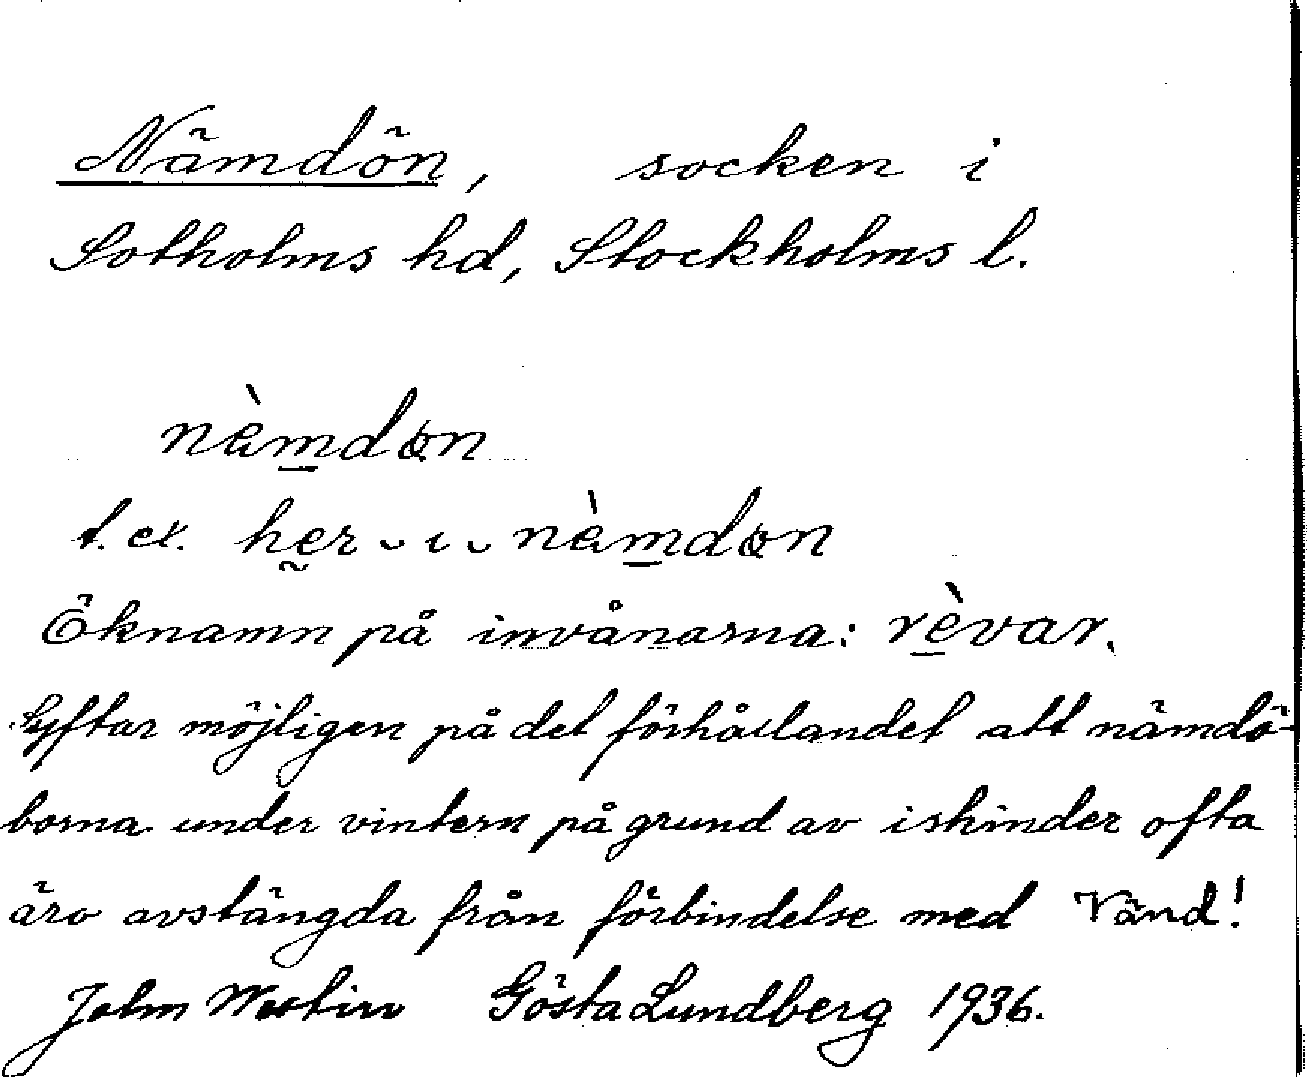 Nämdön, socken i
Sotholms hd, Stockholms l.
nèmdøn
t. ex. her ˘ ı ˘ nèmdøn
Öknamn på invånarna: rèvar.
Syftar möjligen på det förhållandet att nämdö-
borna under vintern på grund av ishinder ofta
äro avstängda från förbindelse med Vänd!
John Westin Gösta Lundberg 1936.